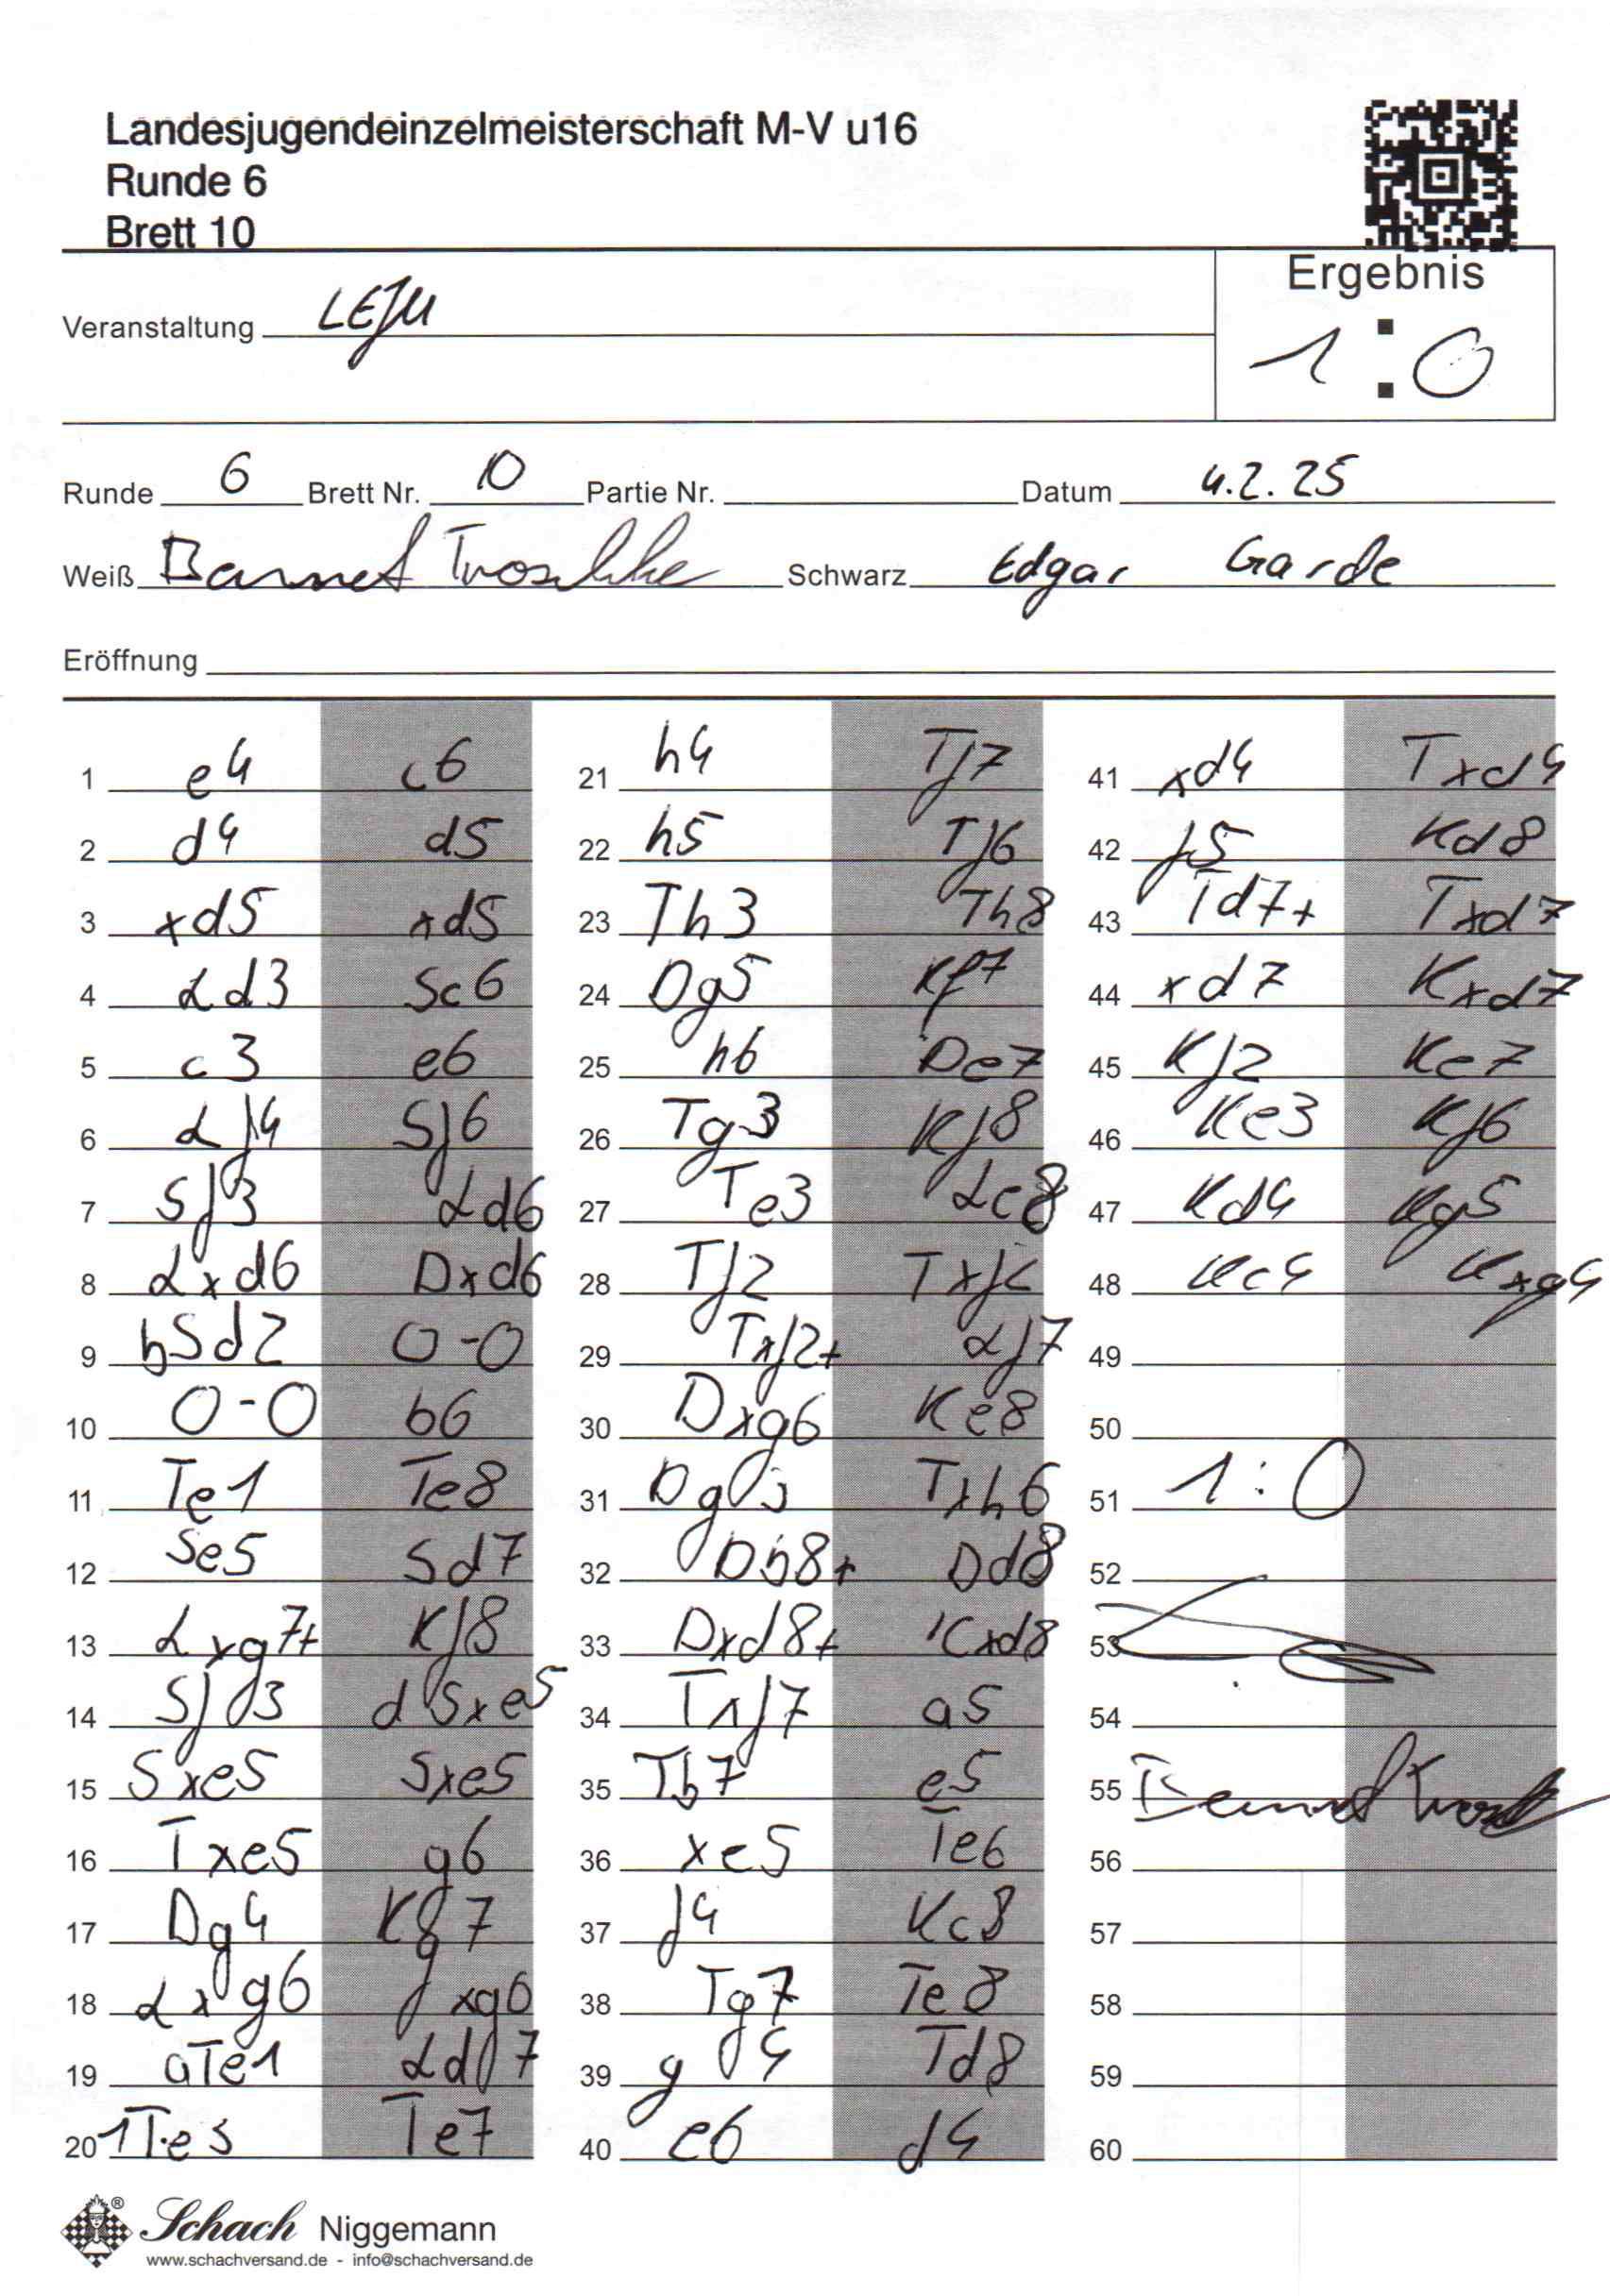 Landesjugendeinzelmeisterschaft M-V u16
Runde 6
Brett 10
Ergebnis
1 : 0
Veranstaltung LEJM
Runde 6 Brett Nr. 10 Partie Nr. Datum 4.2.25
Weiß Schwarz Edgar Garde
Eröffnung
1 e4 c6
2 d4 d5
3 xd5 xd5
4 Ld3 Sc6
5 c3 e6
6 Lf4 Sf6
7 Sf3 Ld6
8 Lxd6 Dxd6
9 bSd2 0-0
10 0-0 b6
11 Te1 Te8
12 Se5 Sd7
13 Lxg7+ Kf8
14 Sf3 dSxe5
15 Sxe5 Sxe5
16 Txe5 g6
17 Dg4 Kg7
18 Lxg6 fxg6
19 aTe1 Ld7
20 1Te3 Te7
21 h4 Tf7
22 h5 Tf6
23 Th3 Th8
24 Dg5 Kf7
25 h6 De7
26 Tg3 Kf8
27 Te3 Le8
28 Tf3 Txf2
29 Txf2+ Lf7
30 Dxg6 Ke8
31 Dg5 Txh6
32 Db8+ Dd8
33 Dxd8+ Kxd8
34 Txf7 a5
35 Tb7 e5
36 xe5 Te6
37 f4 Kc8
38 Tg7 Te8
39 g4 Td8
40 e6 d4
41 xd4 Txd4
42 f5 Kd8
43 Td7+ Txd7
44 xd7 Kxd7
45 Kf2 Ke7
46 Ke3 Kf6
47 Kd4 Kg5
48 Kc4 Kxg4
49
50
51 1:0
52
53
54
55
56
57
58
59
60
® Schach Niggemann
www.schachversand.de - info@schachversand.de